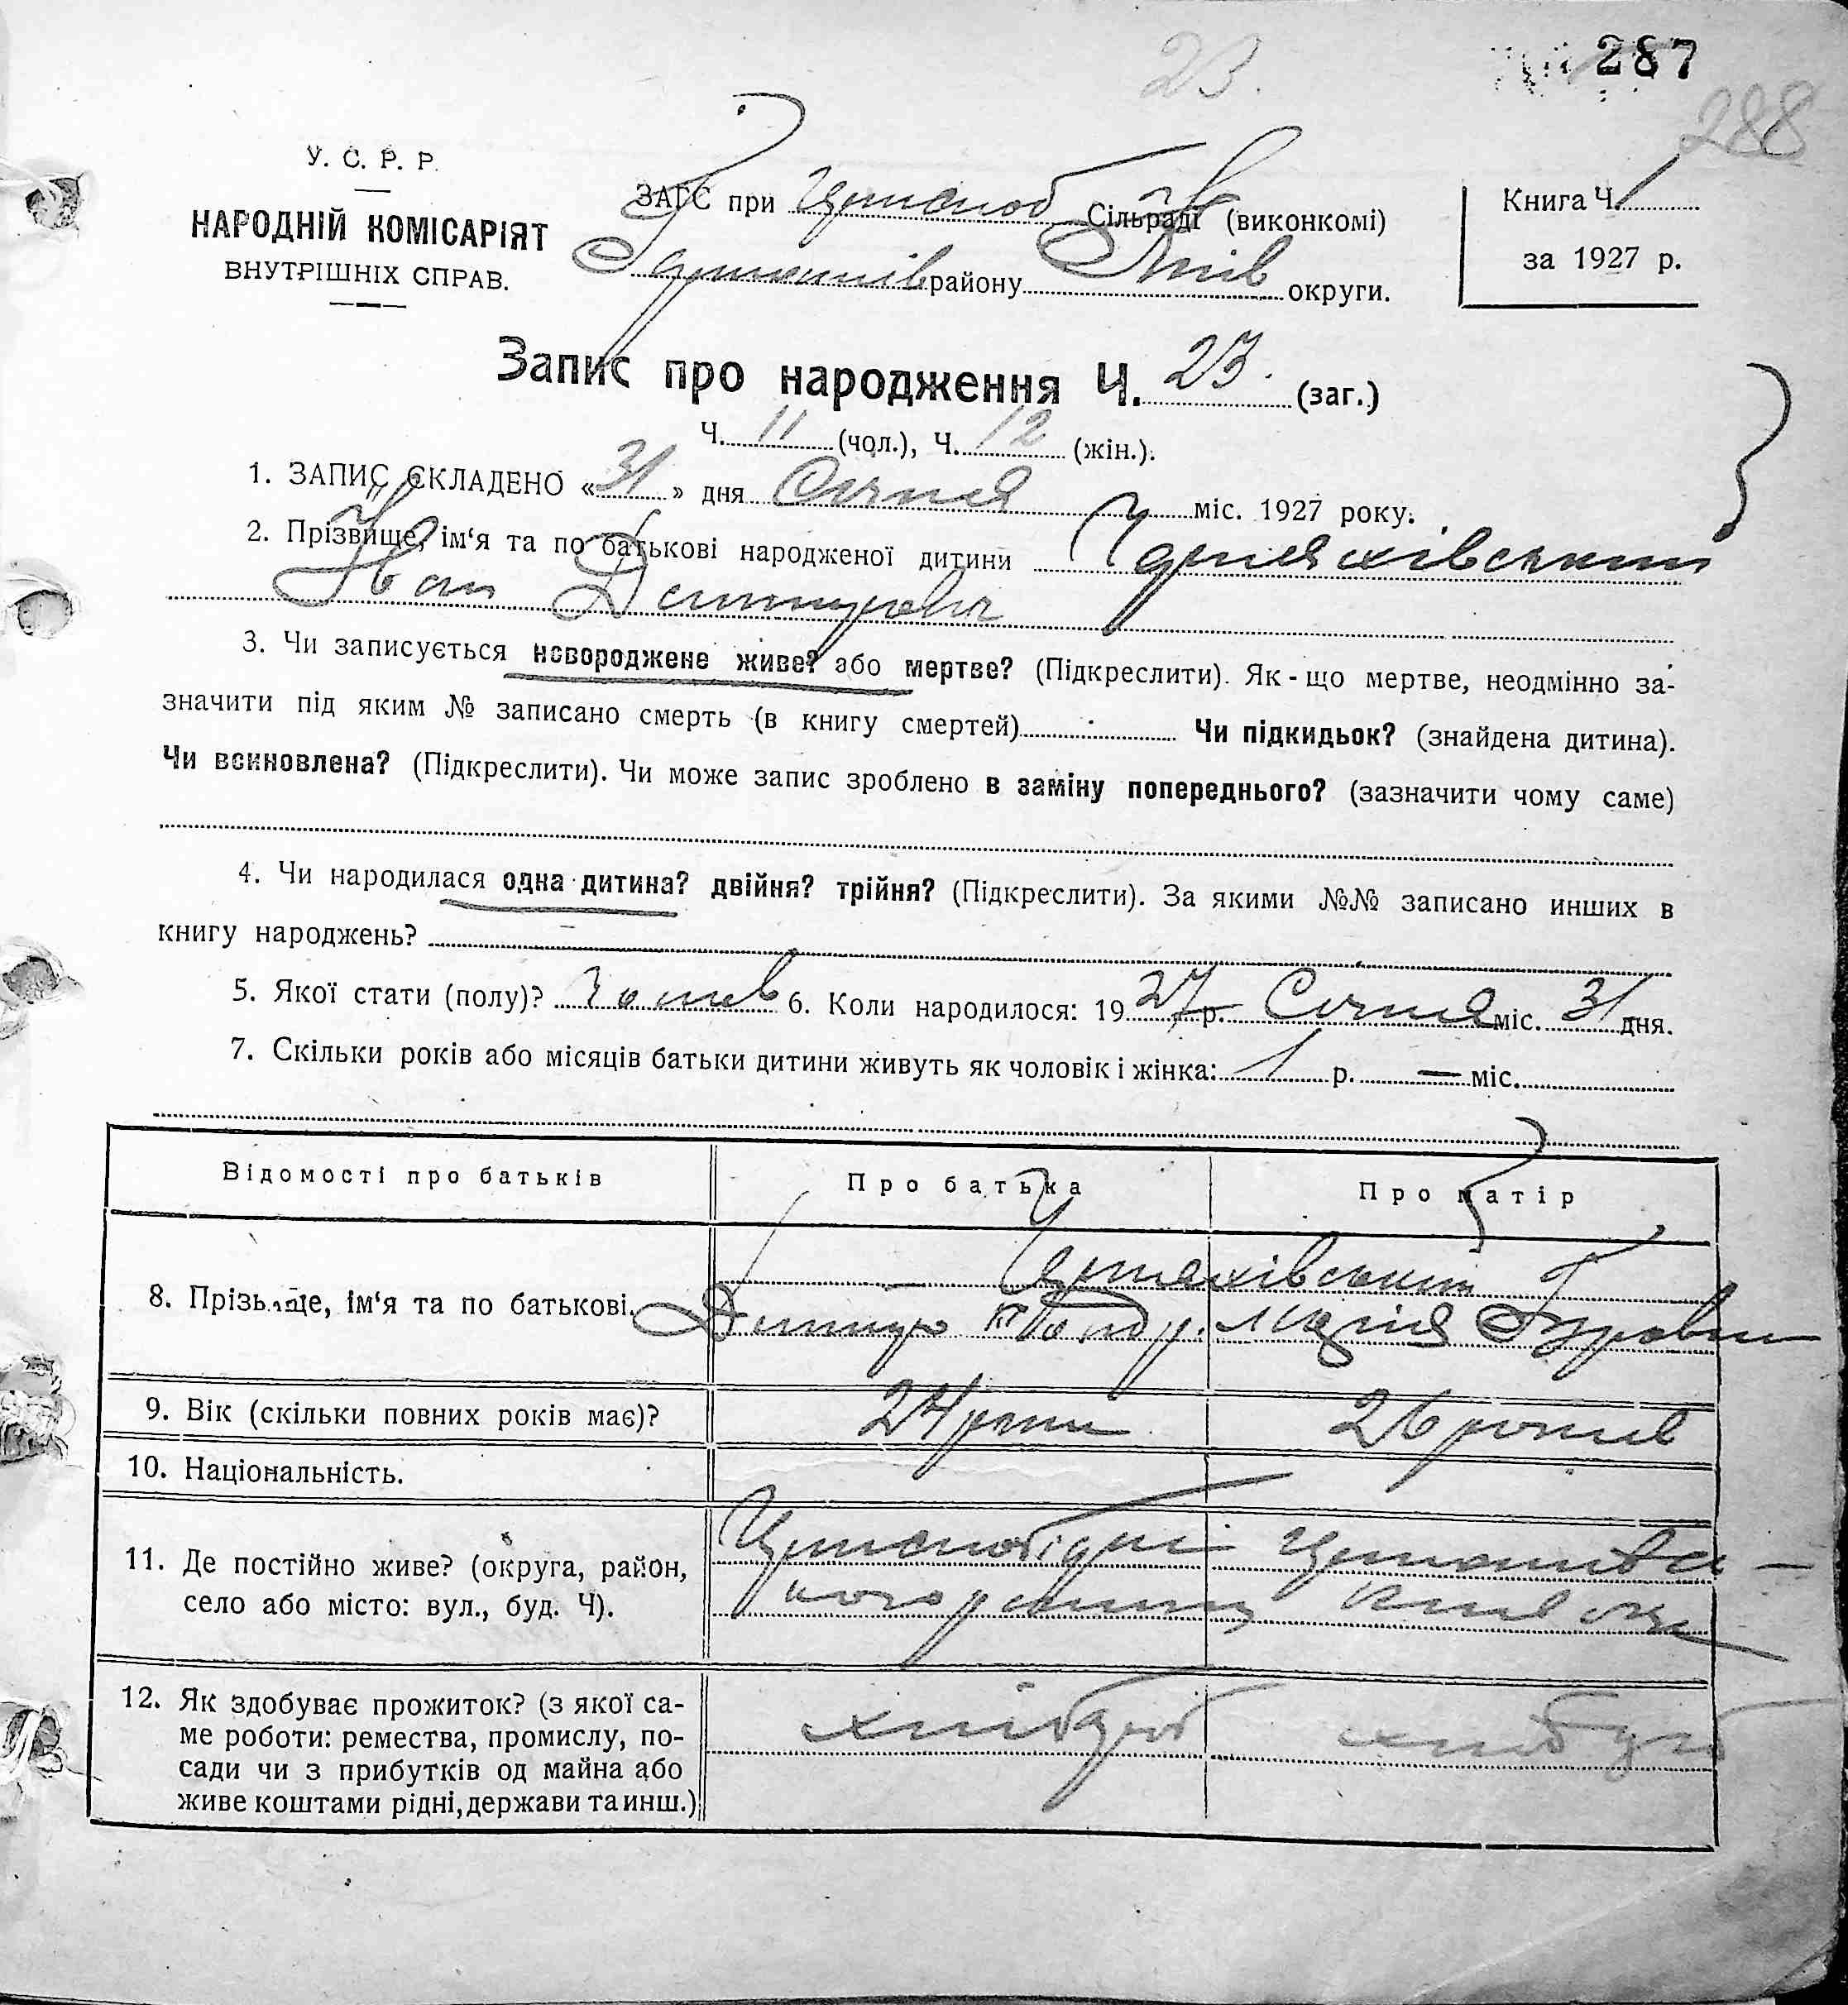 23.
287
288
У. С. Р. Р.
НАРОДНІЙ КОМІСАРІЯТ
ВНУТРІШНІХ СПРАВ.
ЗАГС при Сільраді (виконкомі)
району округи.
Книга Ч. 1
за 1927 р.
Запис про народження Ч. 23. (заг.)
Ч. 11 (чол.), Ч. 12 (жін.).
1. ЗАПИС СКЛАДЕНО « 31 » дня Січня міс. 1927 року.
2. Прізвище, ім‘я та по батькові народженої дитини Черняхівський
Іван Дмитрович
3. Чи записується новороджене живе? або мертве? (Підкреслити). Як - що мертве, неодмінно за-
значити під яким № записано смерть (в книгу смертей) Чи підкидьок? (знайдена дитина).
Чи всиновлена? (Підкреслити). Чи може запис зроблено в заміну попереднього? (зазначити чому саме)
4. Чи народилася одна дитина? двійня? трійня? (Підкреслити). За якими №№ записано инших в
книгу народжень?
5. Якої стати (полу)? 6. Коли народилося: 19 27 р. Січня міс. 31 дня.
7. Скільки років або місяців батьки дитини живуть як чоловік і жінка: 1 р. — міс.
Відомості про батьків Про батька Про матір
8. Прізвище, ім‘я та по батькові. Черняхівський
Дмитро Марія
9. Вік (скільки повних років має)? 24 роки 26 років
10. Національність.
11. Де постійно живе? (округа, район,
село або місто: вул., буд. Ч).
12. Як здобуває прожиток? (з якої са-
ме роботи: ремества, промислу, по-
сади чи з прибутків од майна або
живе коштами рідні, держави та инш.)
хлібороб хлібороб